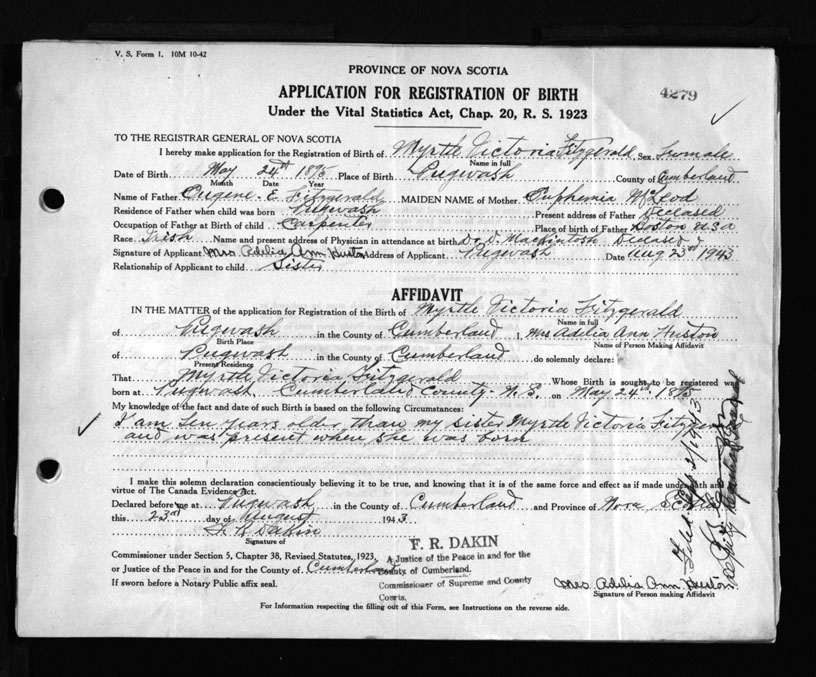 V. S. Form 1. 10M 10-42
PROVINCE OF NOVA SCOTIA
4279
APPLICATION FOR REGISTRATION OF BIRTH
Under the Vital Statistics Act, Chap. 20, R. S. 1923
TO THE REGISTRAR GENERAL OF NOVA SCOTIA
I hereby make application for the Registration of Birth of Myrtle Victoria Fitzgerald Sex Female
Name in full
Date of Birth May 24th Place of Birth Pugwash County of Cumberland
Month Date Year
Name of Father Eugene E Fitzgerald MAIDEN NAME of Mother Euphemia McLeod
Residence of Father when child was born Pugwash Present address of Father Deceased
Occupation of Father at Birth of child Carpenter Place of birth of Father Boston U.S.A
Race Irish Name and present address of Physician in attendance at birth Dr. D. Mackintosh Deceased
Signature of Applicant Mrs Adelia Ann Huston Address of Applicant Pugwash Date Aug 23rd 1943
Relationship of Applicant to child Sister
AFFIDAVIT
IN THE MATTER of the application for Registration of the Birth of Myrtle Victoria Fitzgerald
Name in full
of Pugwash in the County of Cumberland I, Mrs Adelia Ann Huston
Birth Place Name of Person Making Affidavit
of Pugwash in the County of Cumberland do solemnly declare:
Present Residence
That Myrtle Victoria Fitzgerald Whose Birth is sought to be registered was
born at Pugwash Cumberland County N.S. on May 24th
My knowledge of the fact and date of such Birth is based on the following Circumstances:
I am ten years older than my sister Myrtle Victoria Fitzgerald
and was present when she was born
I make this solemn declaration conscientiously believing it to be true, and knowing that it is of the same force and effect as if made under oath and
virtue of The Canada Evidence Act.
Declared before me at Pugwash in the County of Cumberland and Province of Nova Scotia
this 23rd day of August 1943
F. R. Dakin
Signature of
F. R. DAKIN
Commissioner under Section 5, Chapter 38, Revised Statutes, 1923,
A Justice of the Peace in and for the
or Justice of the Peace in and for the County of Cumberland
County of Cumberland.
Commissioner of Supreme and County
Courts.
If sworn before a Notary Public affix seal.
Mrs. Adelia Ann Huston
Signature of Person making Affidavit
For Information respecting the filling out of this Form, see Instructions on the reverse side.